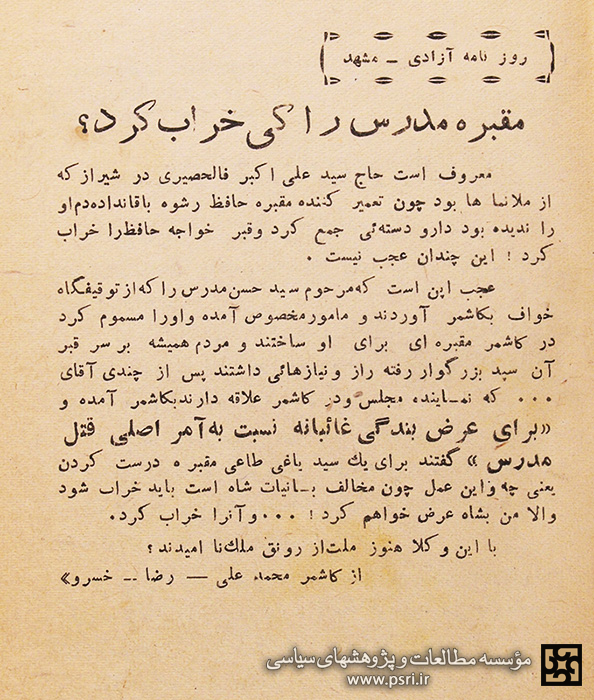 روز نامه آزادی ــ مشهد
مقبره مدرس را کی خراب کرد؟
معروف است حاج سید علی اکبر فال‌حصیری در شیراز که
از ملانما ها بود چون تعمیر کننده مقبره حافظ رشوه باقانداده دم او
را ندیده بود دارو دسته‌ئی جمع کرد وقبر خواجه حافظ را خراب
کرد ! این چندان عجب نیست .
عجب این است که مرحوم سید حسن مدرس را که از توقیفگاه
خواف بکاشمر آوردند و مامور مخصوص آمده واورا مسموم کرد
در کاشمر مقبره ای برای او ساختند و مردم همیشه بر سر قبر
آن سید بزرگوار رفته راز و نیازهائی داشتند پس از چندی آقای
... که نماینده مجلس ودر کاشمر علاقه دارند بکاشمر آمده و
«برای عرض بندگی غائبانه نسبت به آمر اصلی قتل
مدرس» گفتند برای یك سید یاغی طاعی مقبر ه درست کردن
یعنی چه و این عمل چون مخالف بانیات شاه است باید خراب شود
والا من بشاه عرض خواهم کرد ! ... و آنرا خراب کرد.
با این وکلا هنوز ملت از رونق ملك نا امیدند ؟
از کاشمر محمد علی — رضا ـ خسرو»
مؤسسه مطالعات و پژوهشهای سیاسی
www.psri.ir